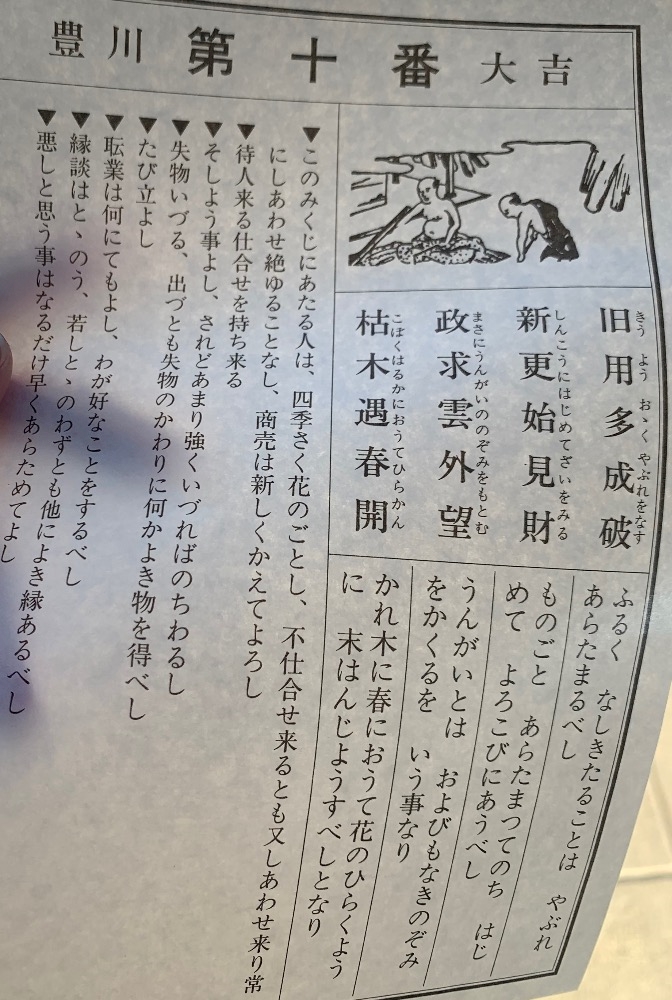 豊川 第十番 大吉
旧用多成破
きうようおゝくやぶれをなす
新更始見財
しんこうにはじめてざいをみる
政求雲外望
まさにうんがいののぞみをもとむ
枯木遇春開
こぼくはるかにおうてひらかん
ふるく なしきたることは やぶれ
あらたまるべし
ものごと あらたまつてのち はじ
めて よろこびにあうべし
うんがいとは およびもなきのぞみ
をかくるを いう事なり
かれ木に春におうて花のひらくよう
に 末はんじようすべしとなり
▼このみくじにあたる人は、四季さく花のごとし、不仕合せ来るとも又しあわせ来り常
にしあわせ絶ゆることなし、商売は新しくかえてよろし
▼待人来る仕合せを持ち来る
▼そしよう事よし、されどあまり強くいづればのちわるし
▼失物いづる、出づとも失物のかわりに何かよき物を得べし
▼たび立よし
▼転業は何にてもよし、わが好なことをするべし
▼縁談はとゝのう、若しとゝのわずとも他によき縁あるべし
▼悪しと思う事はなるだけ早くあらためてよし